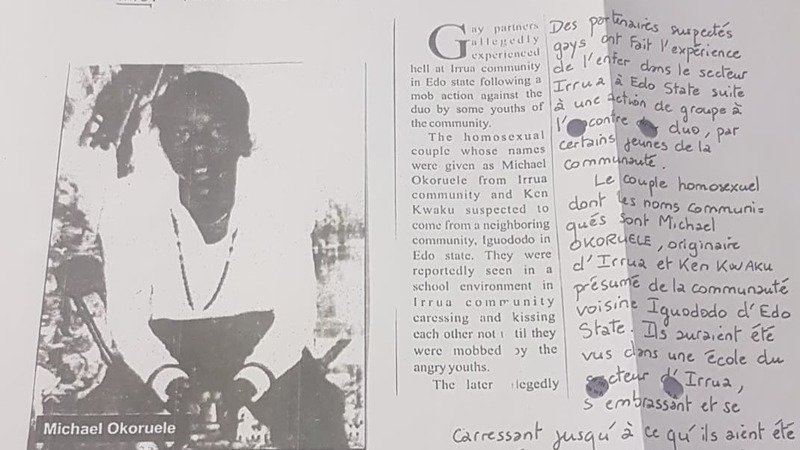 Gay partners
allegedly
experienced
hell at Irrua community
in Edo state following a
mob action against the
duo by some youths of
the community.
The homosexual
couple whose names
were given as Michael
Okoruele from Irrua
community and Ken
Kwaku suspected to
come from a neighboring
community, Iguododo in
Edo state. They were
reportedly seen in a
school environment in
Irrua community
caressing and kissing
each other not til they
were mobbed by the
angry youths.
The later llegedly
Des partenaires suspectés
gays ont fait l'expérience
de l'enfer dans le secteur
Irrua à Edo State suite
à une action de groupe à
l' contre duo, par
certains jeunes de la
communauté.
Le couple homosexuel
dont les noms communi=
qués sont Michael
OKORUELE, originaire
d'Irrua et Ken KWAKU
présumé de la communauté
voisine Iguododo d'Edo
State. Ils auraient été
vus dans une école du
secteur d'Irrua,
s'embrassant et se
carressant jusqu'à ce qu'ils aient été
Michael Okoruele